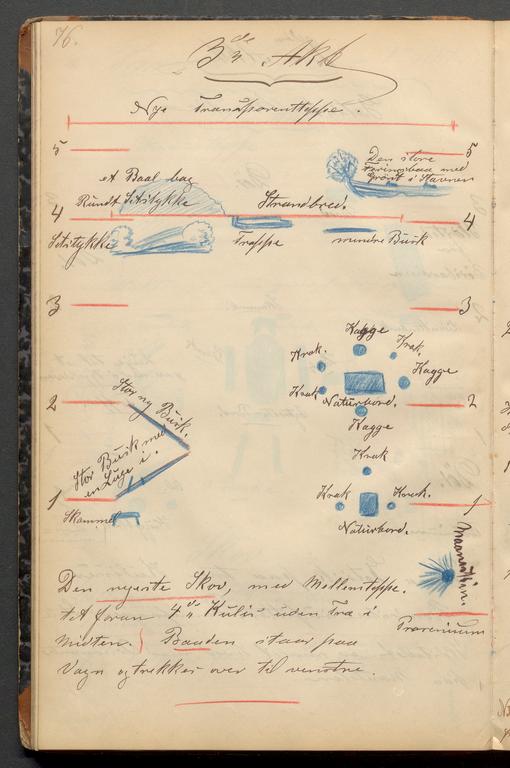 76.
3die Akt
Nye Transparenttæppe.
5
5
Den store
Færingsbaad med
Grønt i Stavnen
et Baal bag
Rundt Sætstykke
Strandbred.
4
4
Sætstykke
Trappe
mindre Busk
3
3
Kagge
Krak.
Krak.
Kagge
Krak
Naturbord.
2
2
Stor ny Busk.
Kagge
Stor Busk med
en Luge i.
Krak
1
Krak
Krak.
1
Skammel
Naturbord.
Maaneskin.
Den nyeste Skov, med Mellemtæppe.
tæt foran 4de Kulis uden Træ i
Midten. Baaden staar paa
Vogn og trækkes over til venstre.
Proscenium